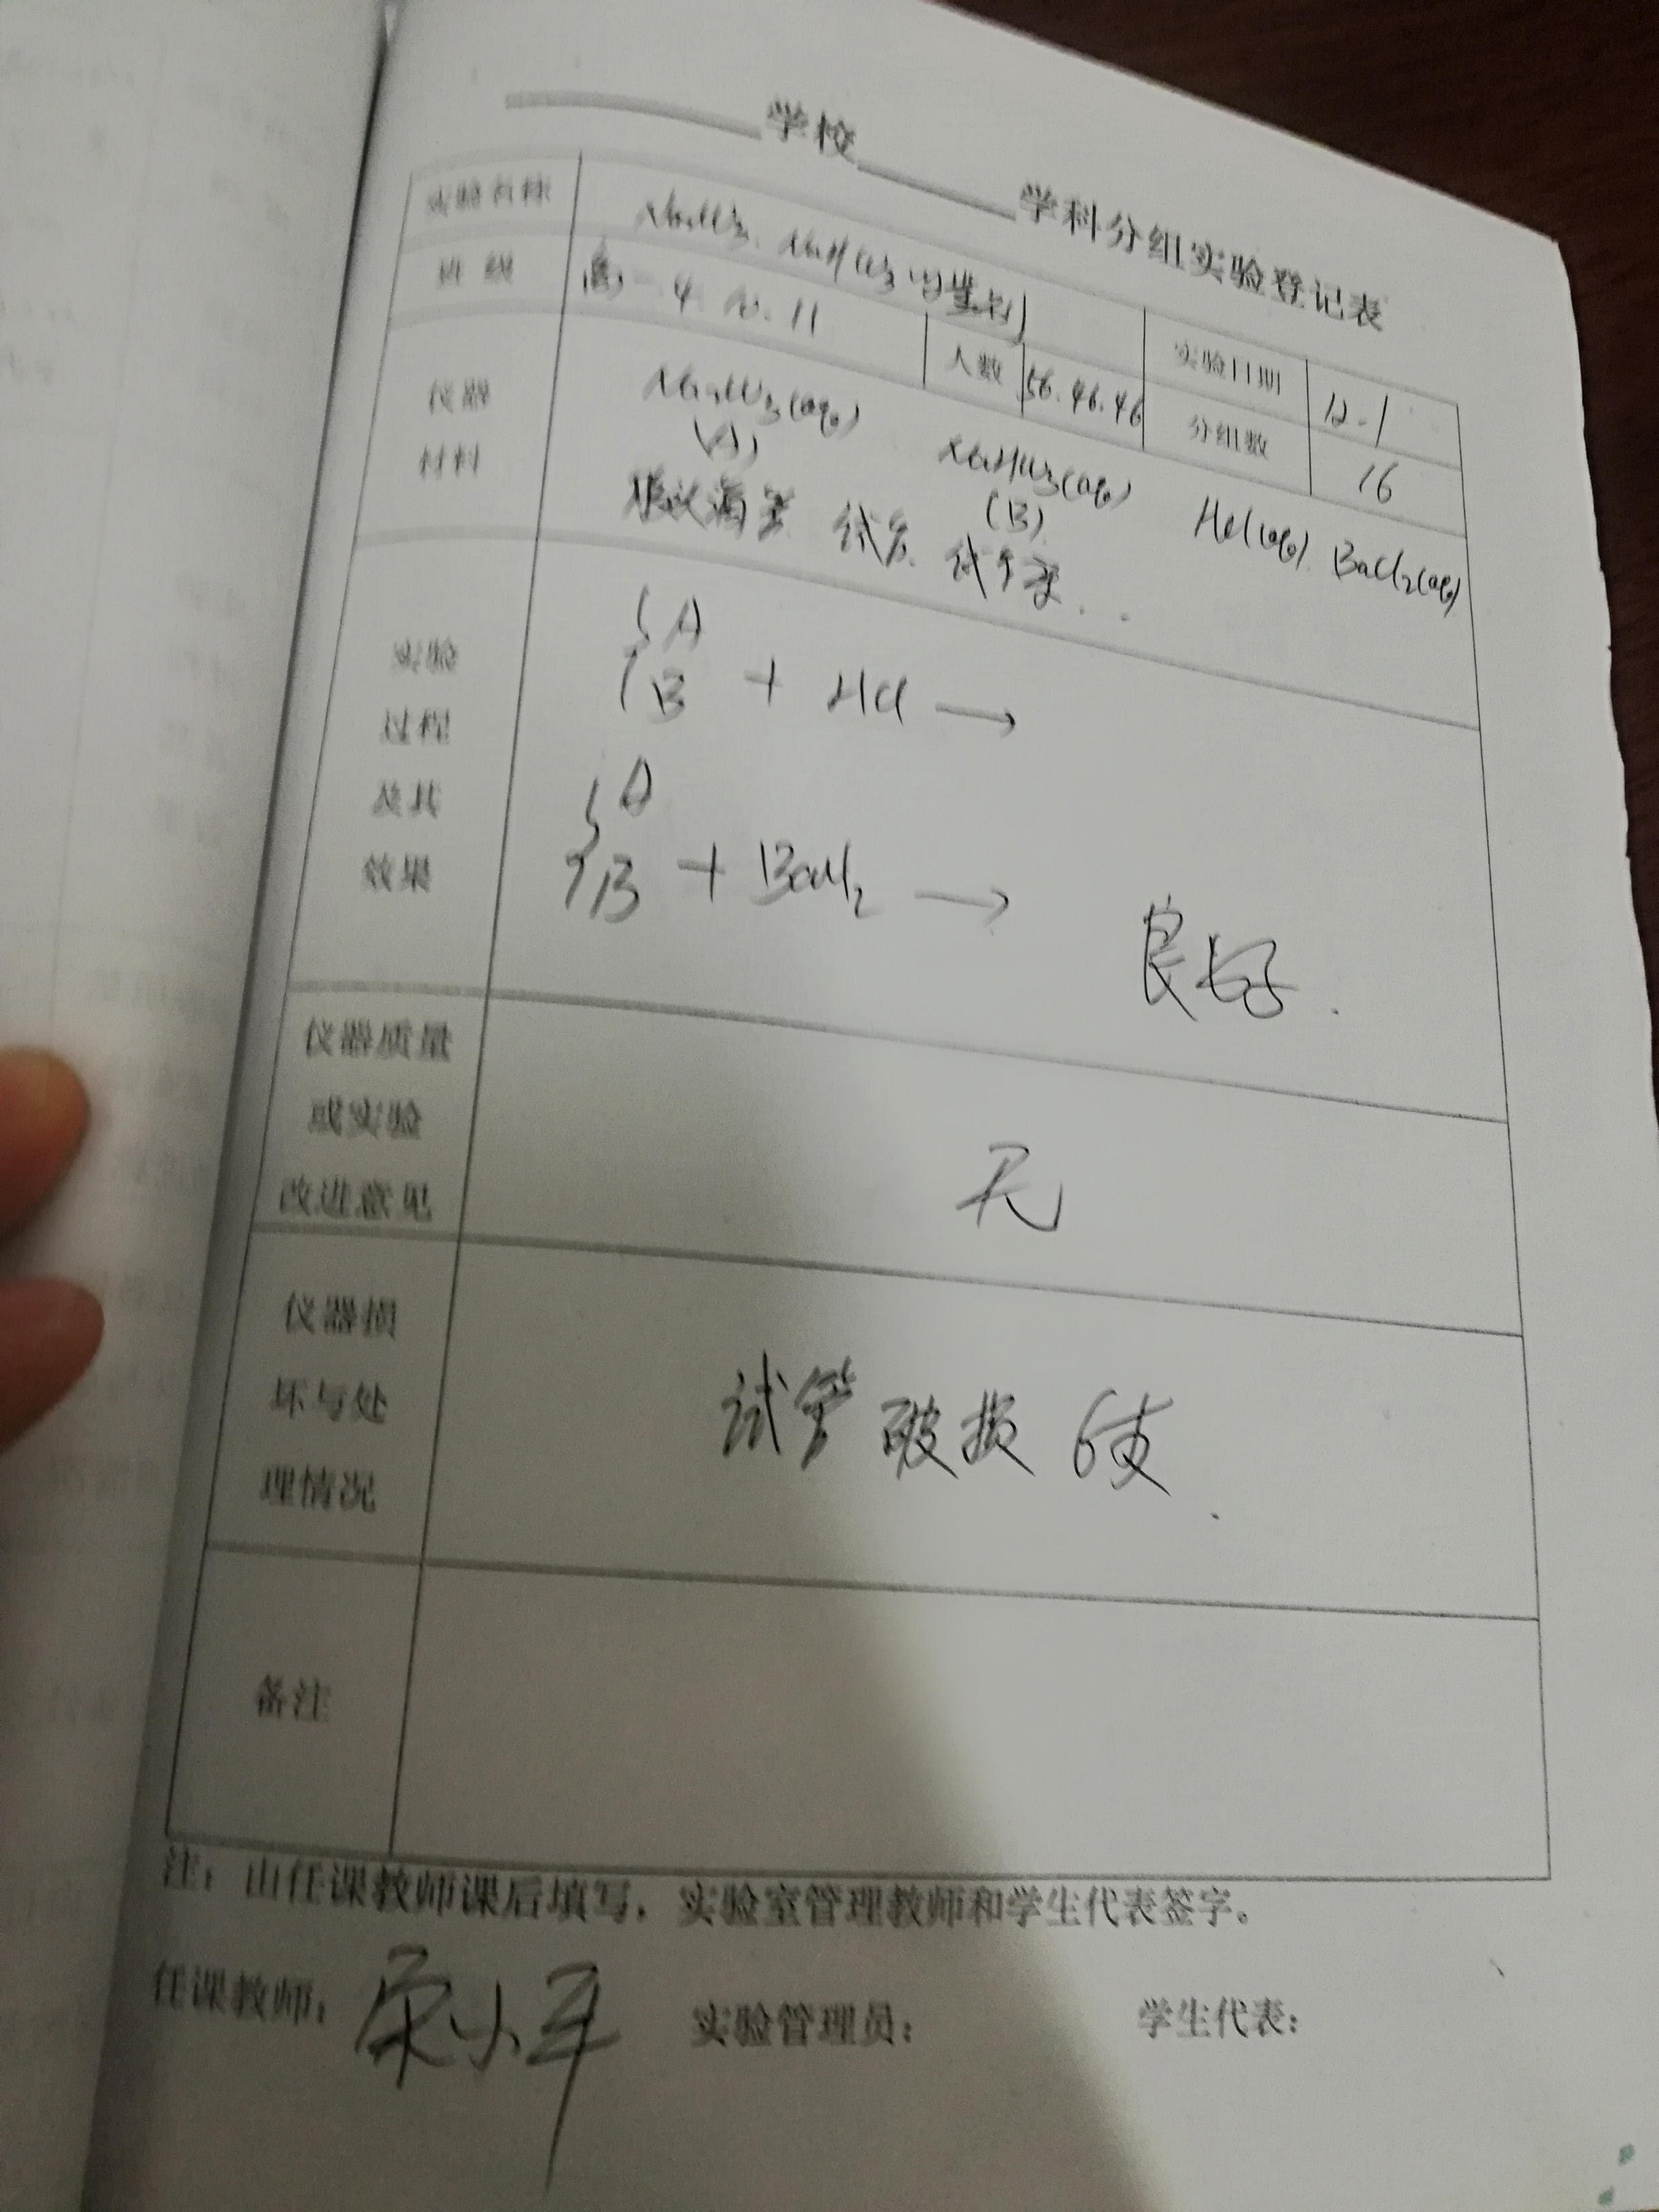 学校 学科分组实验登记表
实验名称 Na₂CO₃、NaHCO₃的性质 实验日期 12.1
班级 高一 4. 10. 11 人数 56.46.46 分组数 16
仪器
材料
Na₂CO₃(aq) NaHCO₃(aq) HCl(aq) BaCl₂(aq)
(A) (B)
胶头滴管 试管 试管架
实验
过程
及其
效果
{A
B + HCl →
{A
B + BaCl₂ →
良好.
仪器质量
或实验
改进意见
无
仪器损
坏与处
理情况
试管破损 6支.
备注
注：由任课教师课后填写，实验室管理教师和学生代表签字。
任课教师： 实验管理员： 学生代表：